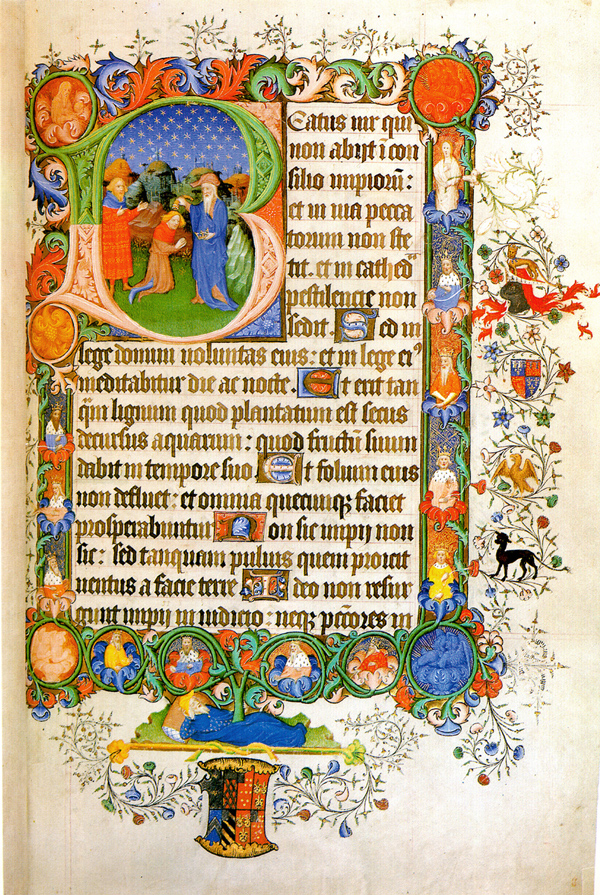 Beatus uir qui
non abijt ī con
silio impiorum:
et in uia pecca
torum non ste
tit. et in cathedᵃ
pestilencie non
sedit. Sed in
lege domini uoluntas eius: et in lege eiꝰ
meditabitur die ac nocte. Et erit tan
qm̄ lignum quod plantatum est secus
decursus aquarum: quod fructū suum
dabit in tempore suo. Et folium eius
non defluet: et omnia quecumqꝫ faciet
prosperabuntur. Non sic impij non
sic: sed tanquam puluis quem proicit
uentus a facie terre. Ideo non resur
gunt impij in iudicio: neqꝫ pctōres in